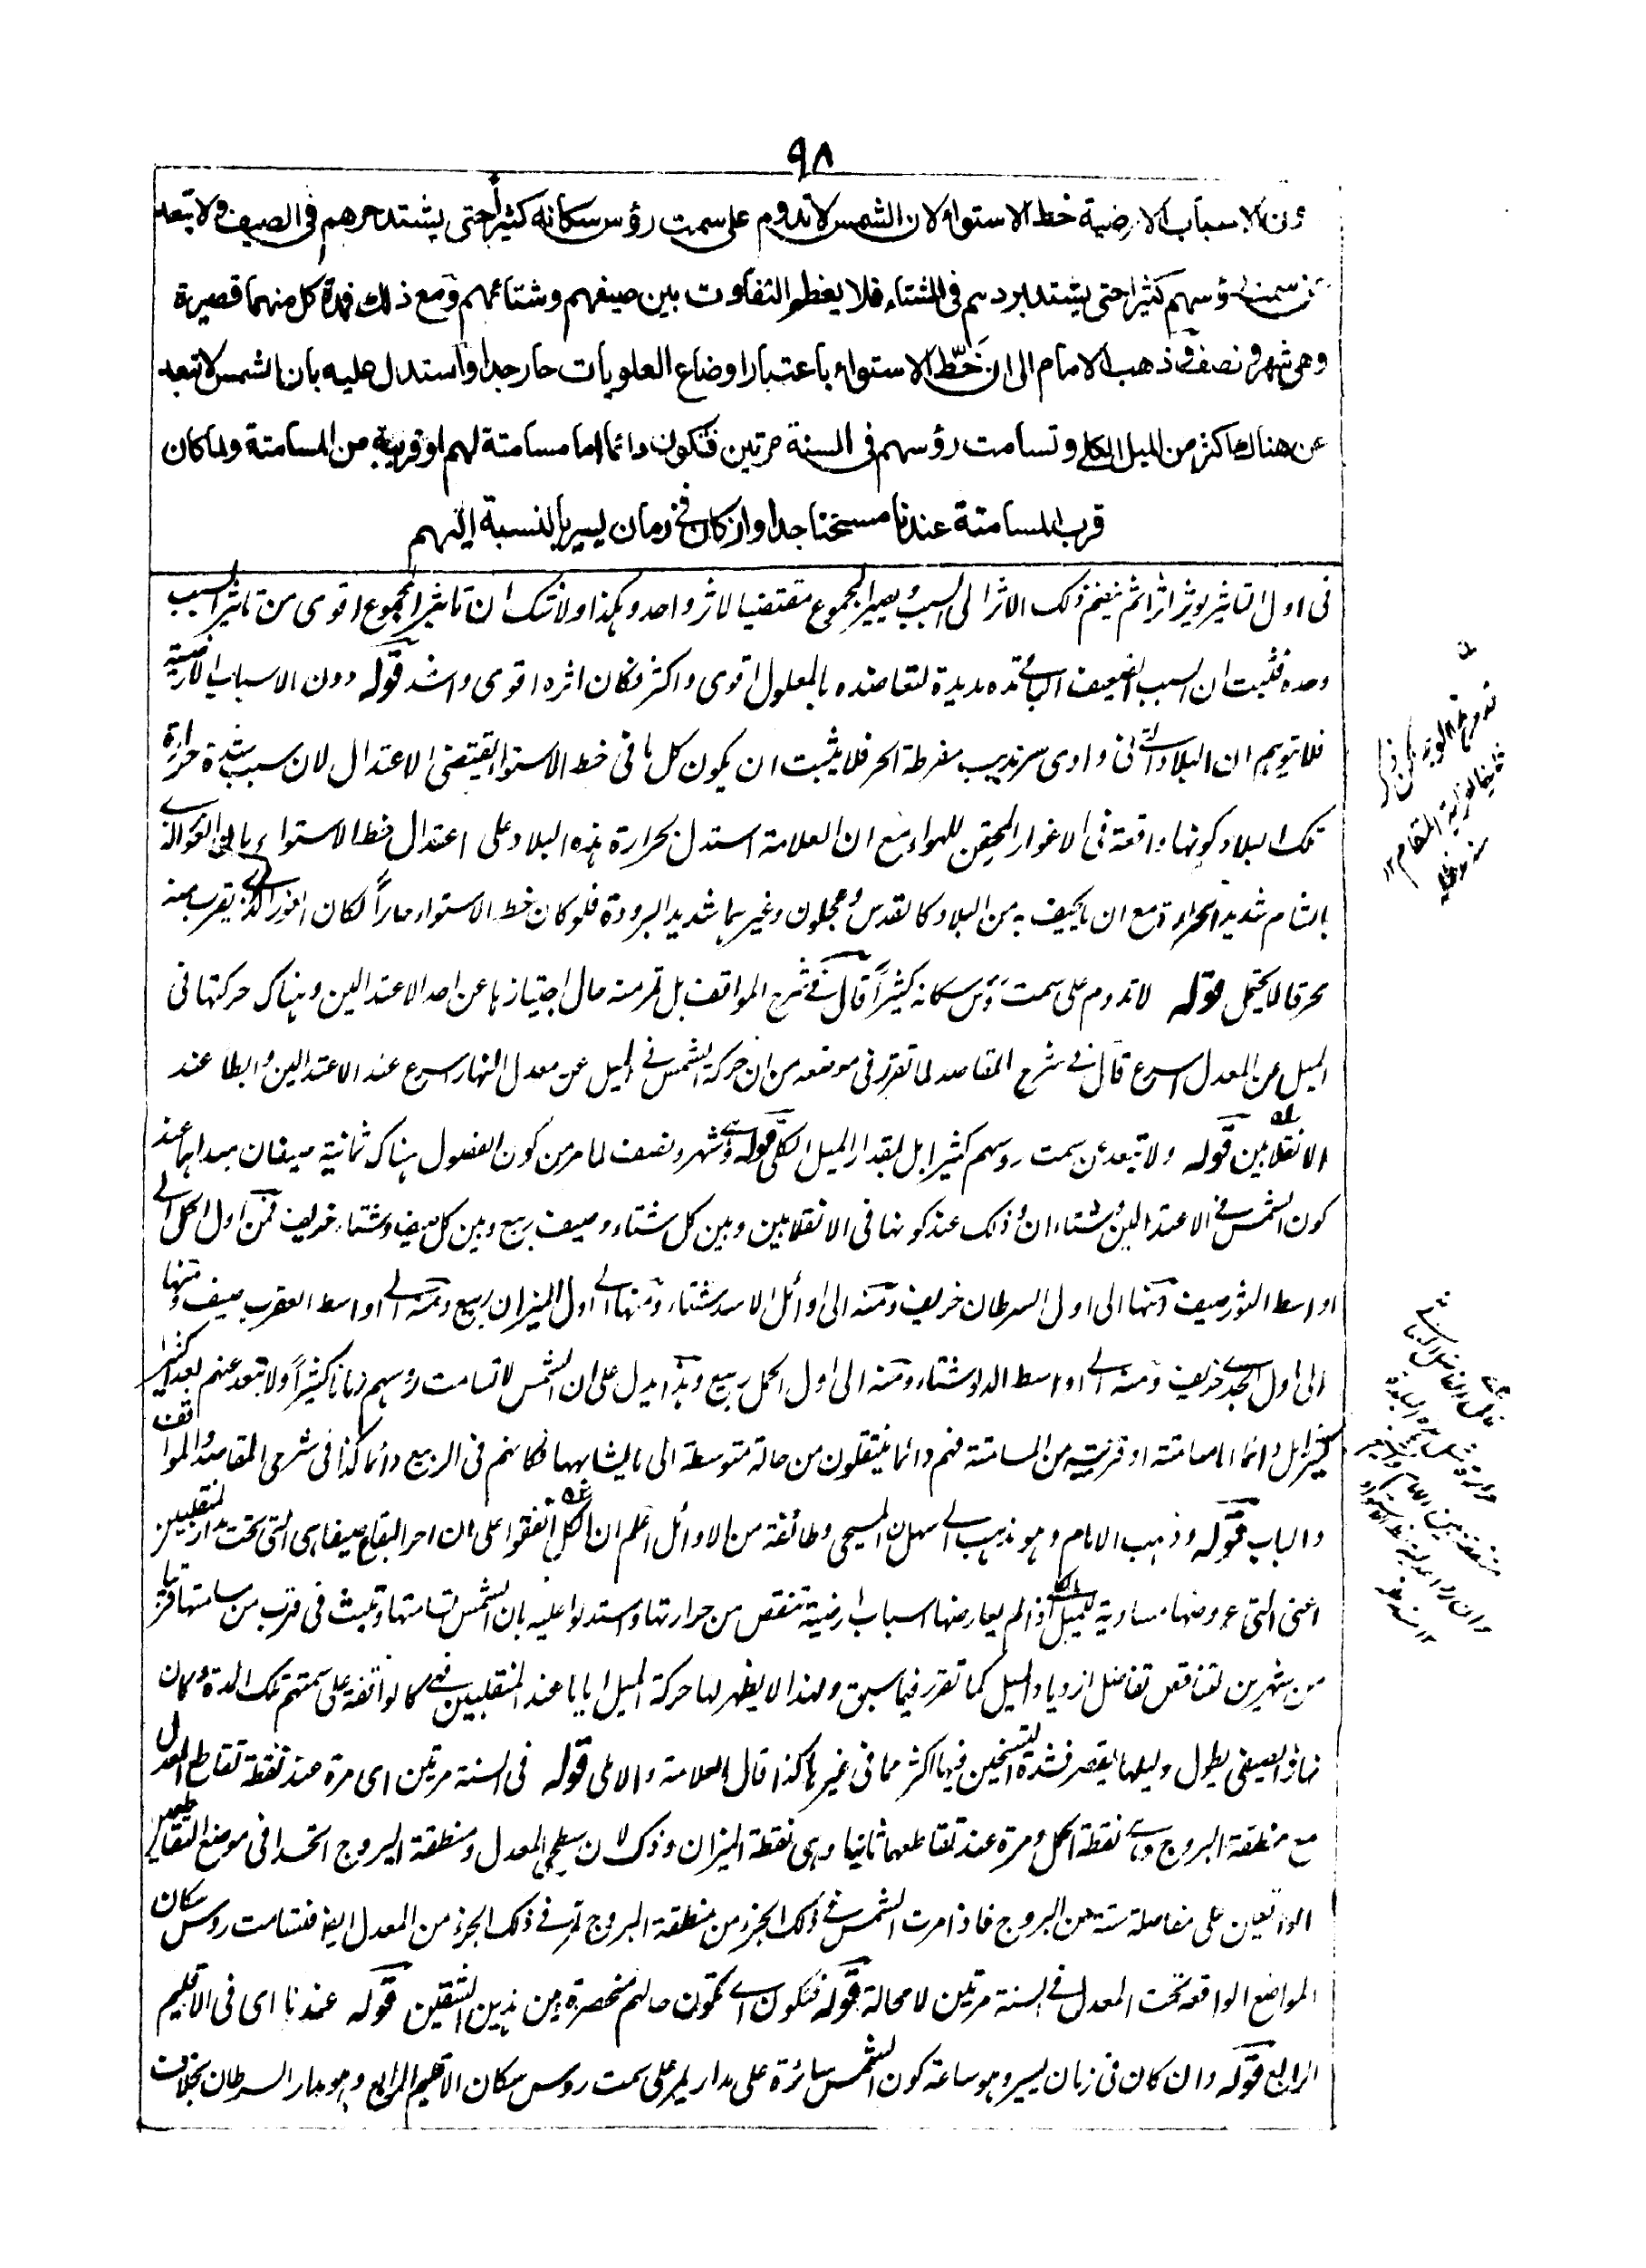 ٩٨
دون الاسباب الارضية خط الاستواء لان الشمس لا تدوم على سمت رؤس سكانه كثيرا حتى يشتد حرهم فى الصيف ولا تبعد
عن سمت رؤسهم كثيرا حتى يشتد بردهم فى الشتاء فلا يعظم التفاوت بين صيفهم وشتائهم ومع ذلك فمدة كل منهما قصيرة
وهى شهر ونصف وذهب الامام الى ان خط الاستواء باعتبار اوضاع العلويات حار جدا واستدل عليه بان الشمس لا تبعد
عن هناك اكثر من الميل الكلى وتسامت رؤسهم فى السنة مرتين فتكون دائما اما مسامتة لهم او قريبة من المسامتة ولما كان
قرب المسامتة عندنا مسخنا جدا وان كان فى زمان يسير بالنسبة اليهم
فى اول التاثير يوثر اثرا ثم ينضم ذلك الاثر الى السبب ويصير المجموع مقتضيا لاثر واحد وهكذا ولا شك ان تاثير المجموع اقوى من تاثير السبب
وحده فثبت ان السبب الضعيف الباقى مدة مديدة لتعاضده بالمعلول اقوى واكثر فكان اثره اقوى واشد قوله دون الاسباب الارضية
فلا يتوهم ان البلاد التى فى وادى سرنديب مفرطة الحر فلا يثبت ان يكون كل ما فى خط الاستواء يقتضى الاعتدال لان سبب شدة حرارة
تلك البلاد كونها واقعة فى الاغوار المحيقن للهواء مع ان العلامة استدل بحرارة هذه البلاد على اعتدال خط الاستواء بان الغور الذى
بالشام شديد الحرارة مع ان ما يحيف به من البلاد كالقدس وعجلون وغيرهما شديد البرودة فلو كان خط الاستواء حارا لكان الغور الذى يقرب منه
محرقا لا يحتمل قوله لا تدوم على سمت رؤس سكانه كثيرا قال فى شرح المواقف بل تمر منه حال اجتيازها عن احد الاعتدالين وهناك حركتها فى
الميل عن المعدل اسرع قال فى شرح المقاصد لما تقرر فى موضعه من ان حركة الشمس فى الميل عن معدل النهار اسرع عند الاعتدالين وابطا عند
الانقلابين قوله ولا تبعد عن سمت روسهم كثيرا بل بقدار الميل الكلى قوله وهى شهر ونصف لما مر من كون الفصول هناك ثمانية صيفان مبداهما عند
كون الشمس فى الاعتدالين وشتاءان وذلك عند كونها فى الانقلابين وبين كل شتاء وصيف ربيع وبين كل صيف وشتاء خريف فمن اول الحمل الى
اواسط الثور صيف ومنها الى اول السرطان خريف ومنه الى اوائل الاسد شتاء ومنها الى اول الميزان ربيع ومنه الى اواسط العقرب صيف ومنها
الى اول الجدى خريف ومنه الى اواسط الدلو شتاء ومنه الى اول الحمل ربيع وهذا يدل على ان الشمس لا تسامت روسهم زمانا كثيرا ولا تبعد عنهم بعدا كثيرا
بل دائما اما مسامتة او قريبة من المسامتة فهم دائما ينتقلون من حالة متوسطة الى ما يشابهها فكانهم فى الربيع دائما كذا فى شرحى المقاصد والمواقف
والباب قوله وذهب الامام وهو مذهب ابى سهل المسيحى وطائفة من الاوائل اعلم ان الكل اتفقوا على ان احر البقاع صيفا هى التى تحت مدار المنقلبين
اعنى التى عروضها مساوية للميل الكلى اذا لم يعارضها اسباب ارضية تنقص من حرارتها واستدلوا عليه بان الشمس تسامتها وتلبث فى قرب من سامتتها قريبا
من شهرين لتناقص تفاضل ازدياد الميل كما تقرر فيما سبق ولهذا لا يظهر لها حركة الميل اياما عند المنقلبين فهى كالواقفة على سمتهم تلك المدة وكان
نهارها الصيفى يطول وليلها يقصر فشدة التسخين فيها اكثر مما فى غيرها كذا قال العلامة والاملى قوله فى السنة مرتين اى مرة عند نقطة تقاطع المعدل
مع منطقة البروج وهى نقطة الحمل ومرة عند تقاطعهما ثانيا وهى نقطة الميزان وذلك لان سطحى المعدل ومنطقة البروج اتحدا فى موضع التقاطعين
الواقعين على مفاصلة ستة من البروج فاذا مرت الشمس فى ذلك الجزء من منطقة البروج تمر فى ذلك الجزء من المعدل ايضا فتسامت روس سكان
المواضع الواقعة تحت المعدل فى السنة مرتين لا محالة قوله فتكون اى تكون حالهم منحصرة بين هذين الشقين قوله عندنا اى فى الاقليم
الرابع قوله وان كان فى زمان يسير وهو ساعة كون الشمس سائرة على مدار يمر على سمت روس سكان الاقليم الرابع وهو مدار السرطان بخلاف